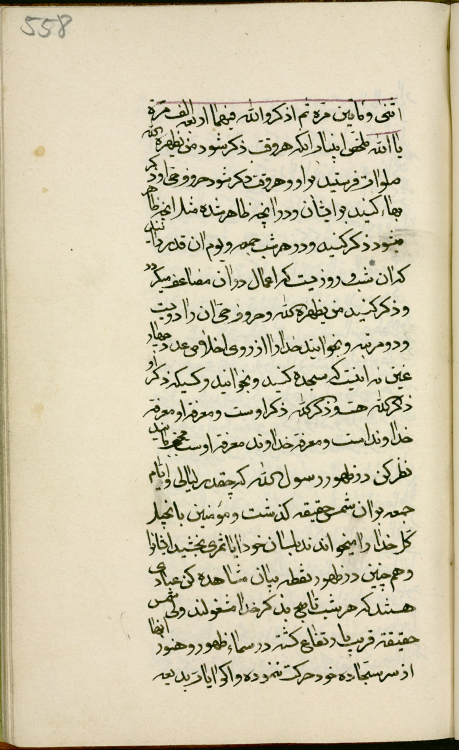 558
اثنی و ثمانین مرة ثم اذکروا الله فیهما اربعه الف مرة
یا الله ملخص اینباب آنکه هر وقت ذکر شود من یظهره الله
صلوات فرستید بر او و هر وقت ذکر شود حروف حی او ذکر
بهاء کنید بر ایشان و در آنچه ظاهر شده مثل آنچه ظاهر
میشود ذکر کنید و در هر شب جمعه و یوم آن قدر
که آن شب و روزیست که اعمال در آن مضاعف میگردد
و ذکر کنید من یظهره الله و حروف حی آن را دویست
و دو مرتبه و بخوانید خدا را از روی اخلاص عدد چهار
عین نه اینست که سجده کنید و بخوانید و کسیکه ذکر او
ذکر الله هست و ذکر الله ذکر اوست و معرفة او معرفة
خداوند است و معرفة خداوند معرفة اوست
نظر کن در ظهور رسول الله که چقدر لیالی و ایام
جمعه بر آن شمس حقیقه گذشت و مؤمنین بانجیل
کل خدا را میخواندند بلسان خود آیا ثمری بخشید
و هم چنین در ظهور نقطه بیان مشاهده کن عبادی
هستند که هر شب تا صبح بذکر خدا مشغولند ولی شمس
حقیقة قریب بارتفاع گشته در سماء ظهور و هنوز
از سر سجاده خود حرکت ننموده و اگر آیات بدیعه